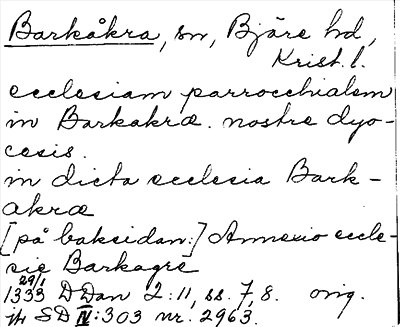 Barkåkra, sn, Bjäre hd,
Krist. l.
ecclesiam parrocchialem
in Barkakræ. nostre dyo-
cesis.
in dicta ecclesia Bark-
akræ
[på baksidan:] Annexio eccle-
sie Barkagre
1333 29/1 DDan 2:11, ss. 7, 8. orig.
jfr SD IV:303 nr. 2963.